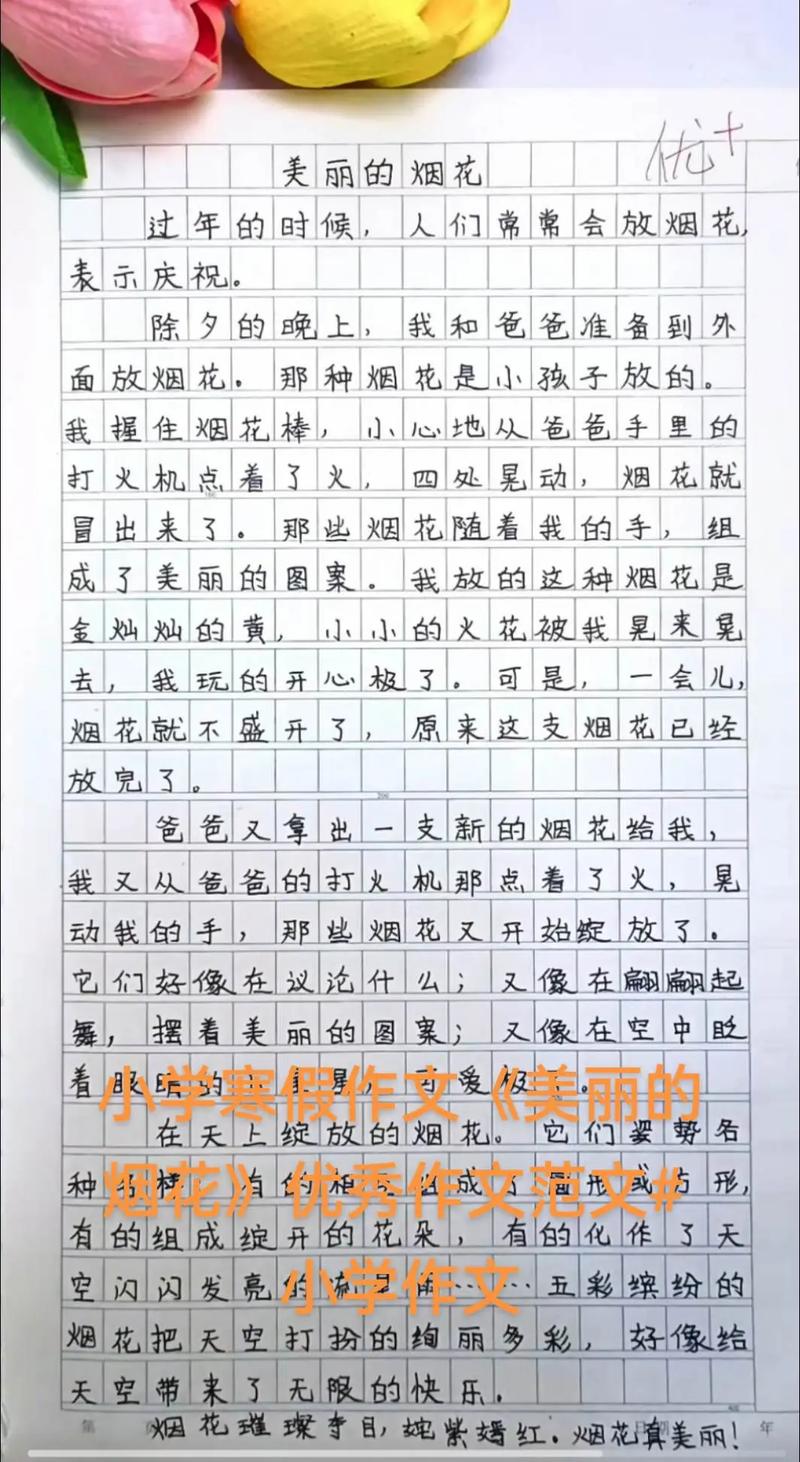 优+
美丽的烟花
过年的时候，人们常常会放烟花，
表示庆祝。
除夕的晚上，我和爸爸准备到外
面放烟花。那种烟花是小孩子放的。
我握住烟花棒，小心地从爸爸手里的
打火机点着了火，四处晃动，烟花就
冒出来了。那些烟花随着我的手，组
成了美丽的图案。我放的这种烟花是
金灿灿的黄，小小的火花被我晃来晃
去，我玩的开心极了。可是，一会儿，
烟花就不盛开了，原来这支烟花已经
放完了。
爸爸又拿出一支新的烟花给我，
我又从爸爸的打火机那点着了火，晃
动我的手，那些烟花又开始绽放了。
它们好像在议论什么；又像在翩翩起
舞，摆着美丽的图案；又像在空中眨
着眼睛的 可爱极 。
小学寒假作文《美丽的
在天上绽放的烟花。它们姿势各
种 形，
烟花》优秀作文范文#
有的组成绽开的花朵，有的化作了天
空闪闪发亮的 …………五彩缤纷的
小学作文
烟花把天空打扮的绚丽多彩，好像给
天空带来了无限的快乐。
烟花璀璨夺目，姹紫嫣红。烟花真美丽！